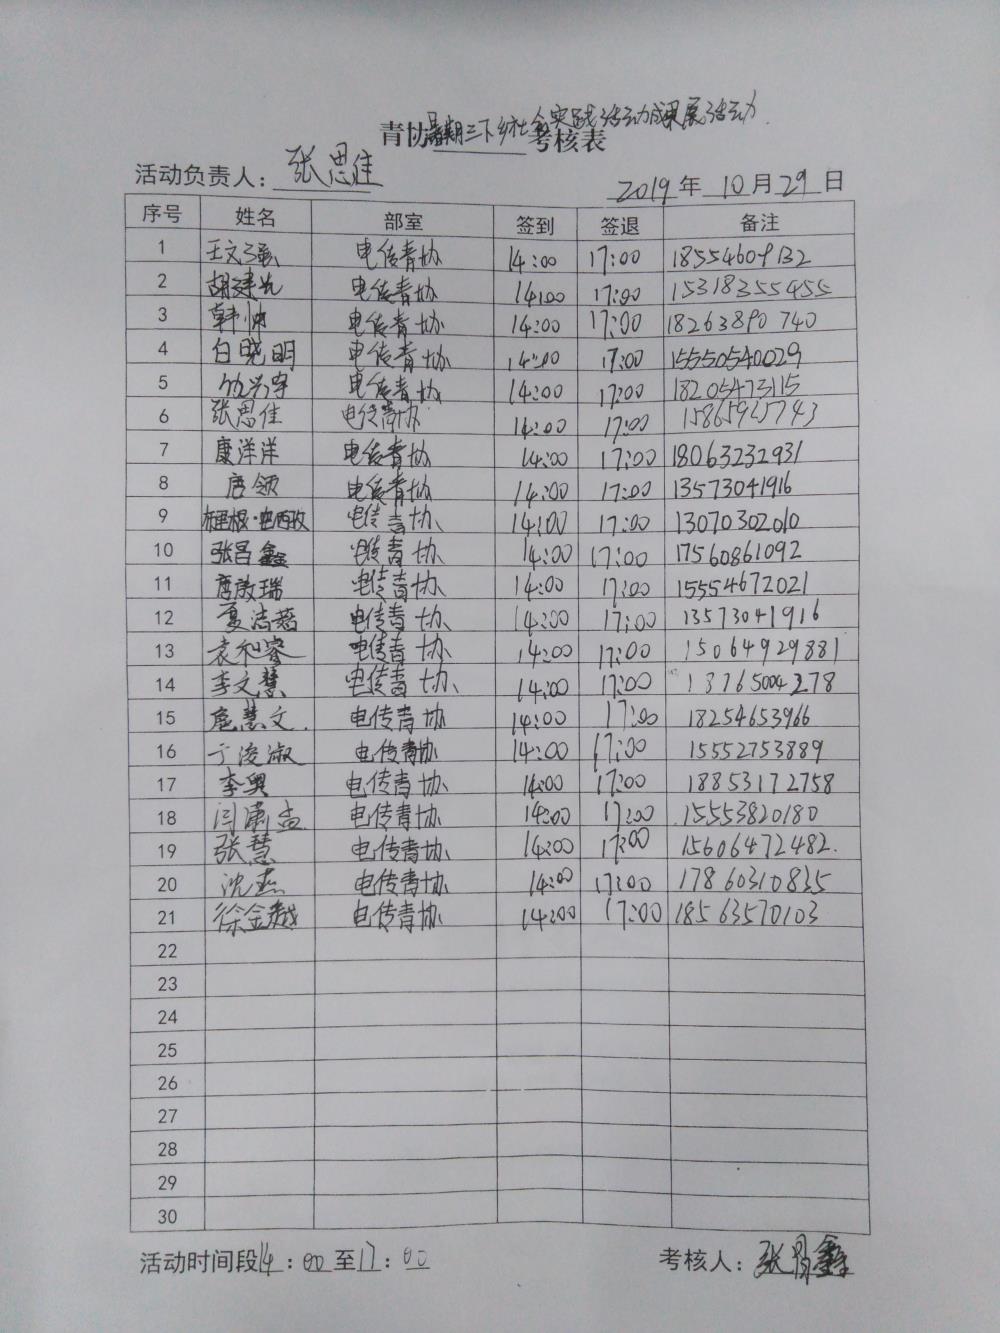 青协暑期三下乡社会实践活动成果展活动考核表
活动负责人：张思佳
2019年10月29日
序号 姓名 部室 签到 签退 备注
1 王文强 电传青协 14:00 17:00 18554609132
2 胡建先 电传青协 14:00 17:00 15318355455
3 韩帅 电传青协 14:00 17:00 18263890740
4 白晓明 电传青协 14:00 17:00 15550540029
5 电传青协 14:00 17:00 18205473115
6 张思佳 电传青协 14:00 17:00 15865925743
7 康洋洋 电传青协 14:00 17:00 18063232931
8 唐领 电传青协 14:00 17:00 13573041916
9 电传青协 14:00 17:00 13070302010
10 张昌鑫 电传青协 14:00 17:00 17560861092
11 唐敬瑞 电传青协 14:00 17:00 15554672021
12 夏洁茹 电传青协 14:00 17:00 13573041916
13 袁和睿 电传青协 14:00 17:00 15064929881
14 李文慧 电传青协 14:00 17:00 13765004278
15 庞慧文 电传青协 14:00 17:00 18254653966
16 于浚淑 电传青协 14:00 17:00 15552753889
17 李奥 电传青协 14:00 17:00 18853172758
18 闫肃孟 电传青协 14:00 17:00 15553820180
19 张慧 电传青协 14:00 17:00 15606472482
20 沈燕 电传青协 14:00 17:00 17860310835
21 徐金越 电传青协 14:00 17:00 18563570103
22
23
24
25
26
27
28
29
30
活动时间段14：00至17：00 考核人：张昌鑫